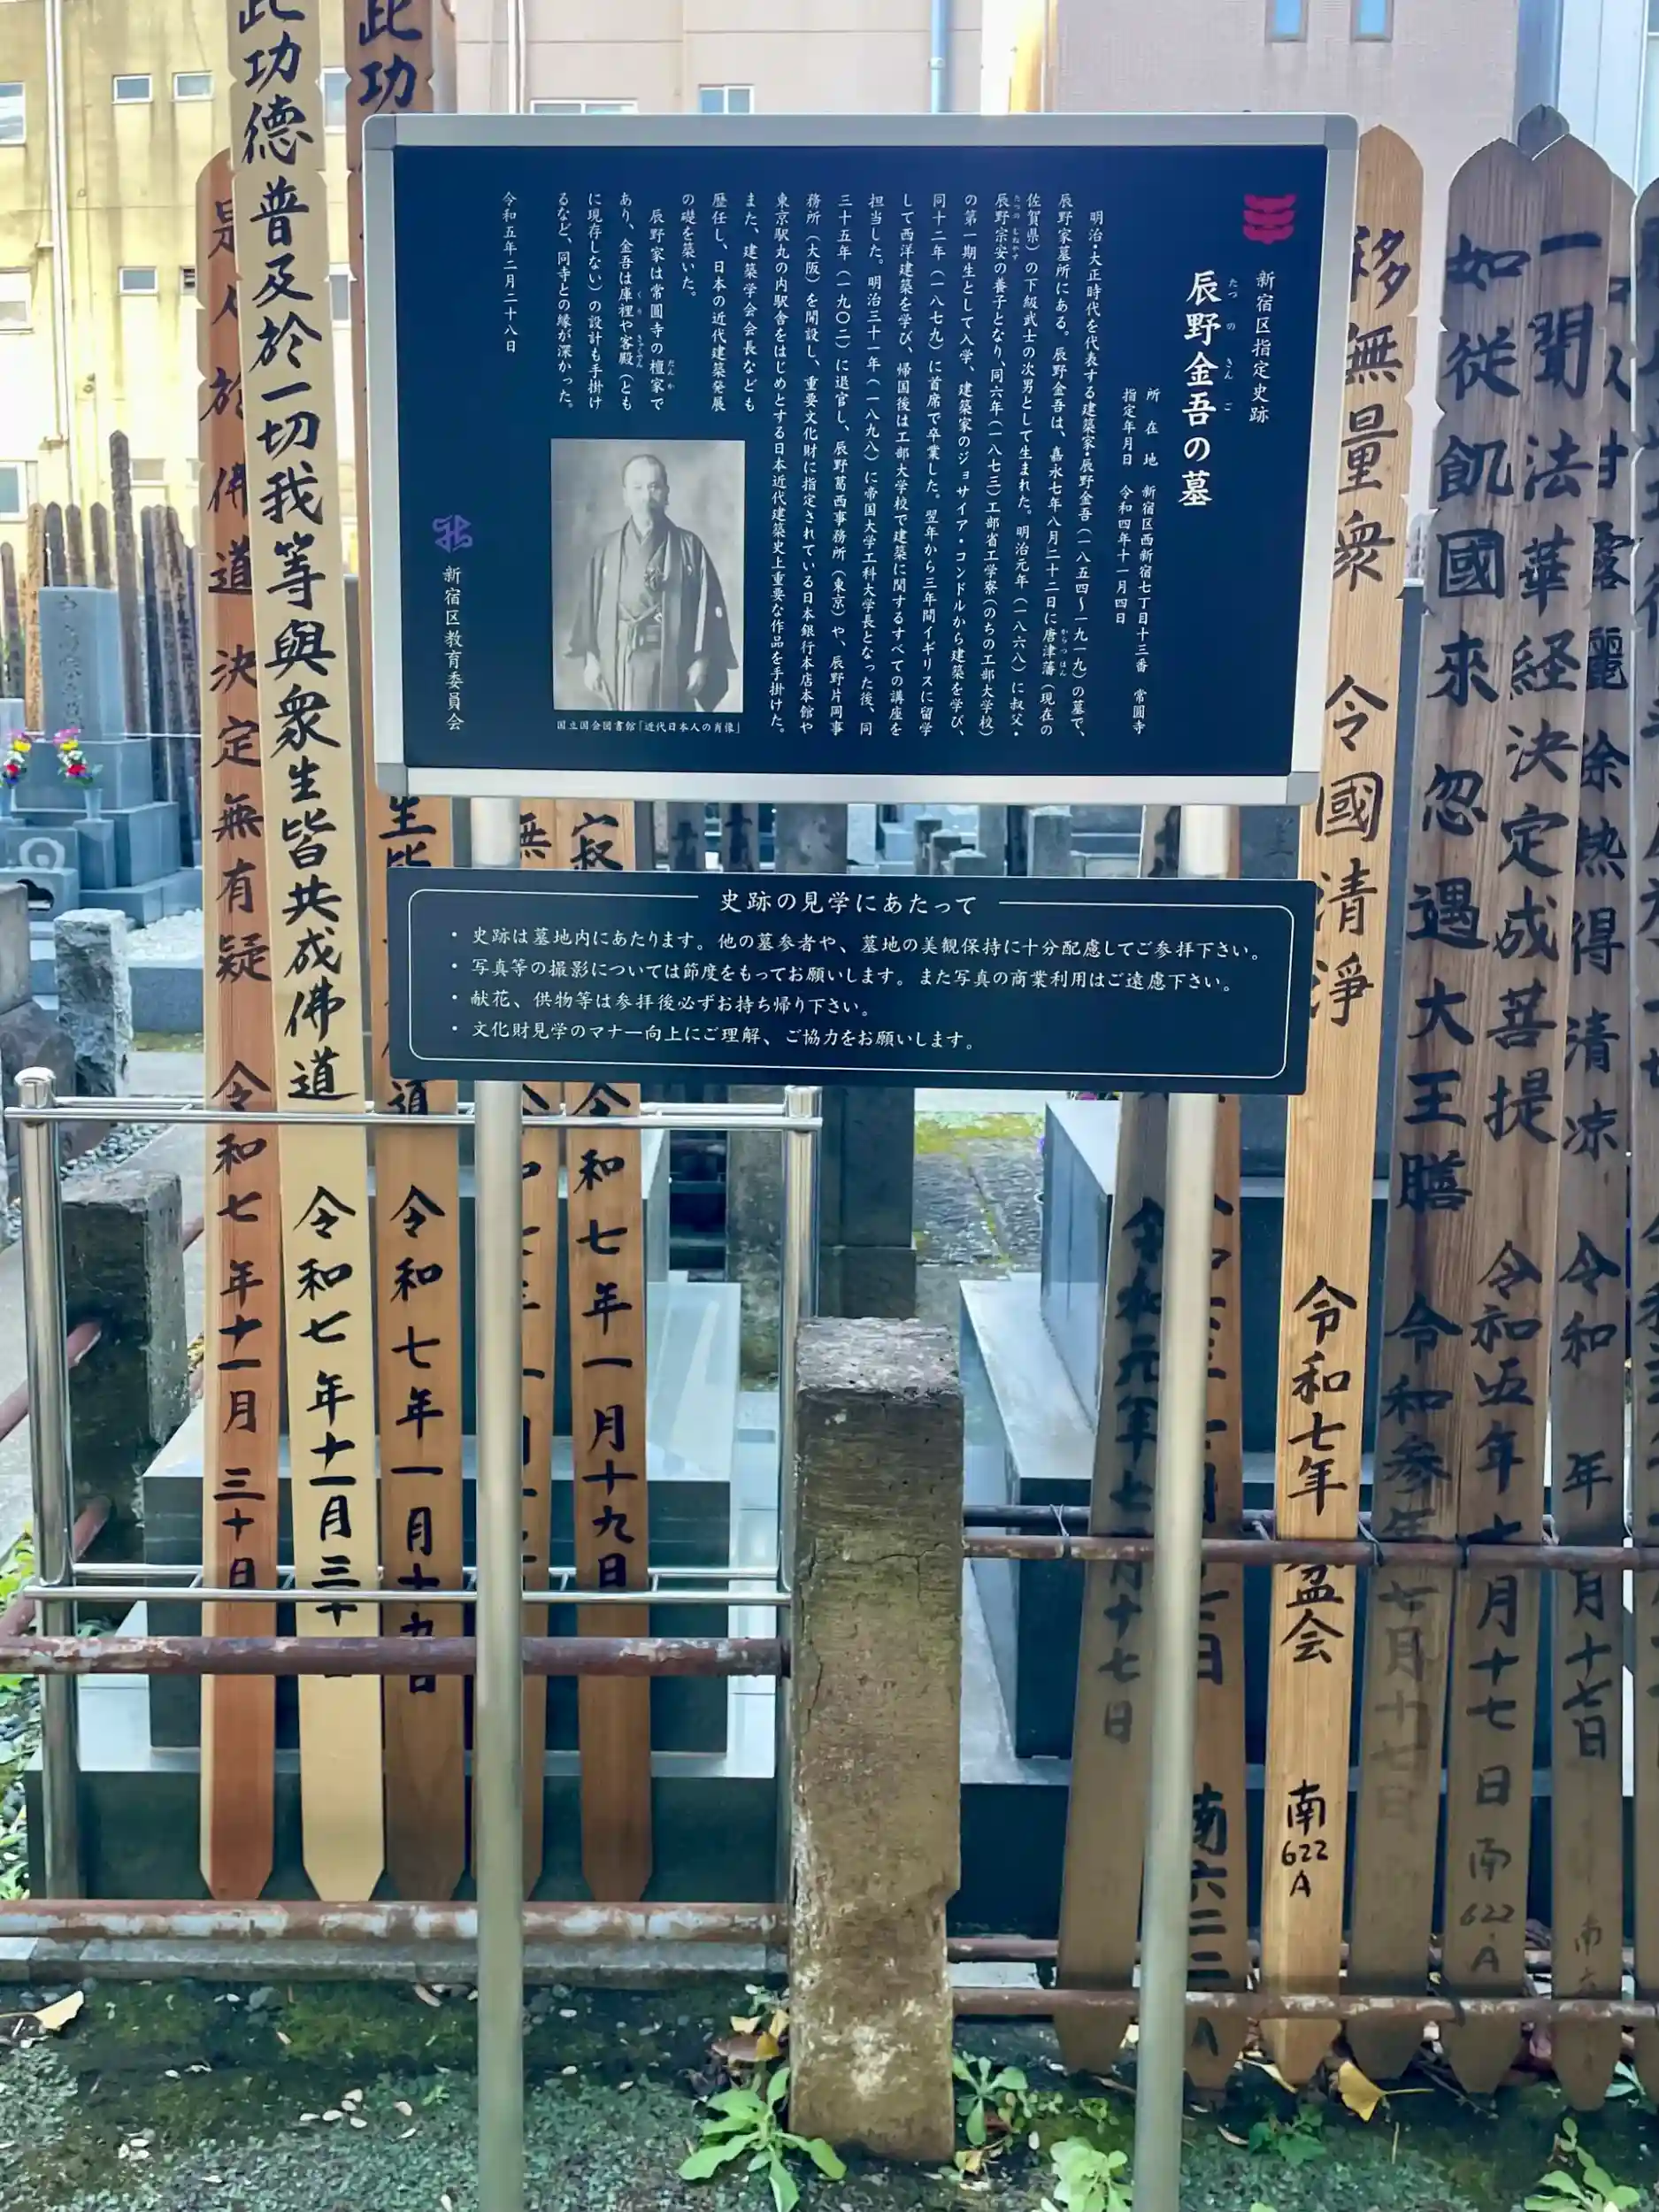 新宿区指定史跡
辰野金吾の墓
たつ の きん ご
所在地 新宿区西新宿七丁目十三番 常圓寺
指定年月日 令和四年十一月四日
明治・大正時代を代表する建築家・辰野金吾（一八五四～一九一九）の墓で、
辰野家墓所にある。辰野金吾は、嘉永七年八月二十二日に唐津藩（現在の
からつはん
佐賀県）の下級武士の次男として生まれた。明治元年（一八六八）に叔父・
辰野宗安の養子となり、同六年（一八七三）工部省工学寮（のちの工部大学校）
の第一期生として入学、建築家のジョサイア・コンドルから建築を学び、
同十二年（一八七九）に首席で卒業した。翌年から三年間イギリスに留学
して西洋建築を学び、帰国後は工部大学校で建築に関するすべての講座を
担当した。明治三十一年（一八九八）に帝国大学工科大学長となった後、同
三十五年（一九〇二）に退官し、辰野葛西事務所（東京）や、辰野片岡事
務所（大阪）を開設し、重要文化財に指定されている日本銀行本店本館や
東京駅丸の内駅舎をはじめとする日本近代建築史上重要な作品を手掛けた。
また、建築学会会長なども
歴任し、日本の近代建築発展
の礎を築いた。
辰野家は常圓寺の檀家で
だんか
あり、金吾は庫裡や客殿（とも
くり きゃくでん
に現存しない）の設計も手掛け
るなど、同寺との縁が深かった。
令和五年二月二十八日
国立国会図書館「近代日本人の肖像」
新宿区教育委員会
史跡の見学にあたって
・史跡は墓地内にあたります。他の墓参者や、墓地の美観保持に十分配慮してご参拝下さい。
・写真等の撮影については節度をもってお願いします。また写真の商業利用はご遠慮下さい。
・献花、供物等は参拝後必ずお持ち帰り下さい。
・文化財見学のマナー向上にご理解、ご協力をお願いします。
是人於佛道決定無有疑 令和七年十一月三十日
此功德普及於一切我等與衆生皆共成佛道 令和七年十一月三十日
此功
生皆
道 令和七年一月十九日
寂
令和七年一月十九日
令和元年七月十七日
南六二二A
移無量衆 令國清淨 令和七年 盆会 南622A
如従飢國來忽遇大王膳 令和参年七月十七日
一聞法華経決定成菩提 令和五年七月十七日 南622A
除熱得清涼 令和 年 月十七日